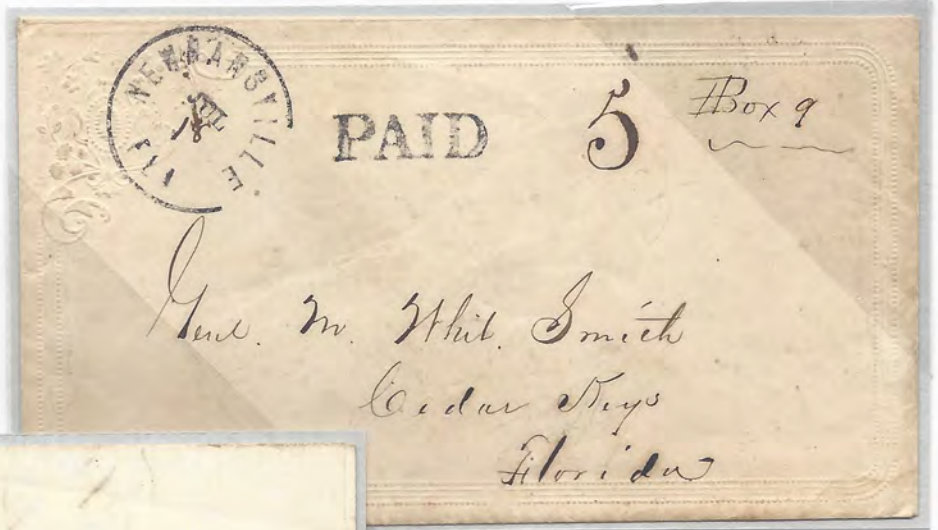 NEWNANSVILLE
FLA
JUL
PAID
5
Box 9
Genl. M. Whit. Smith
Cedar Keys
Florida